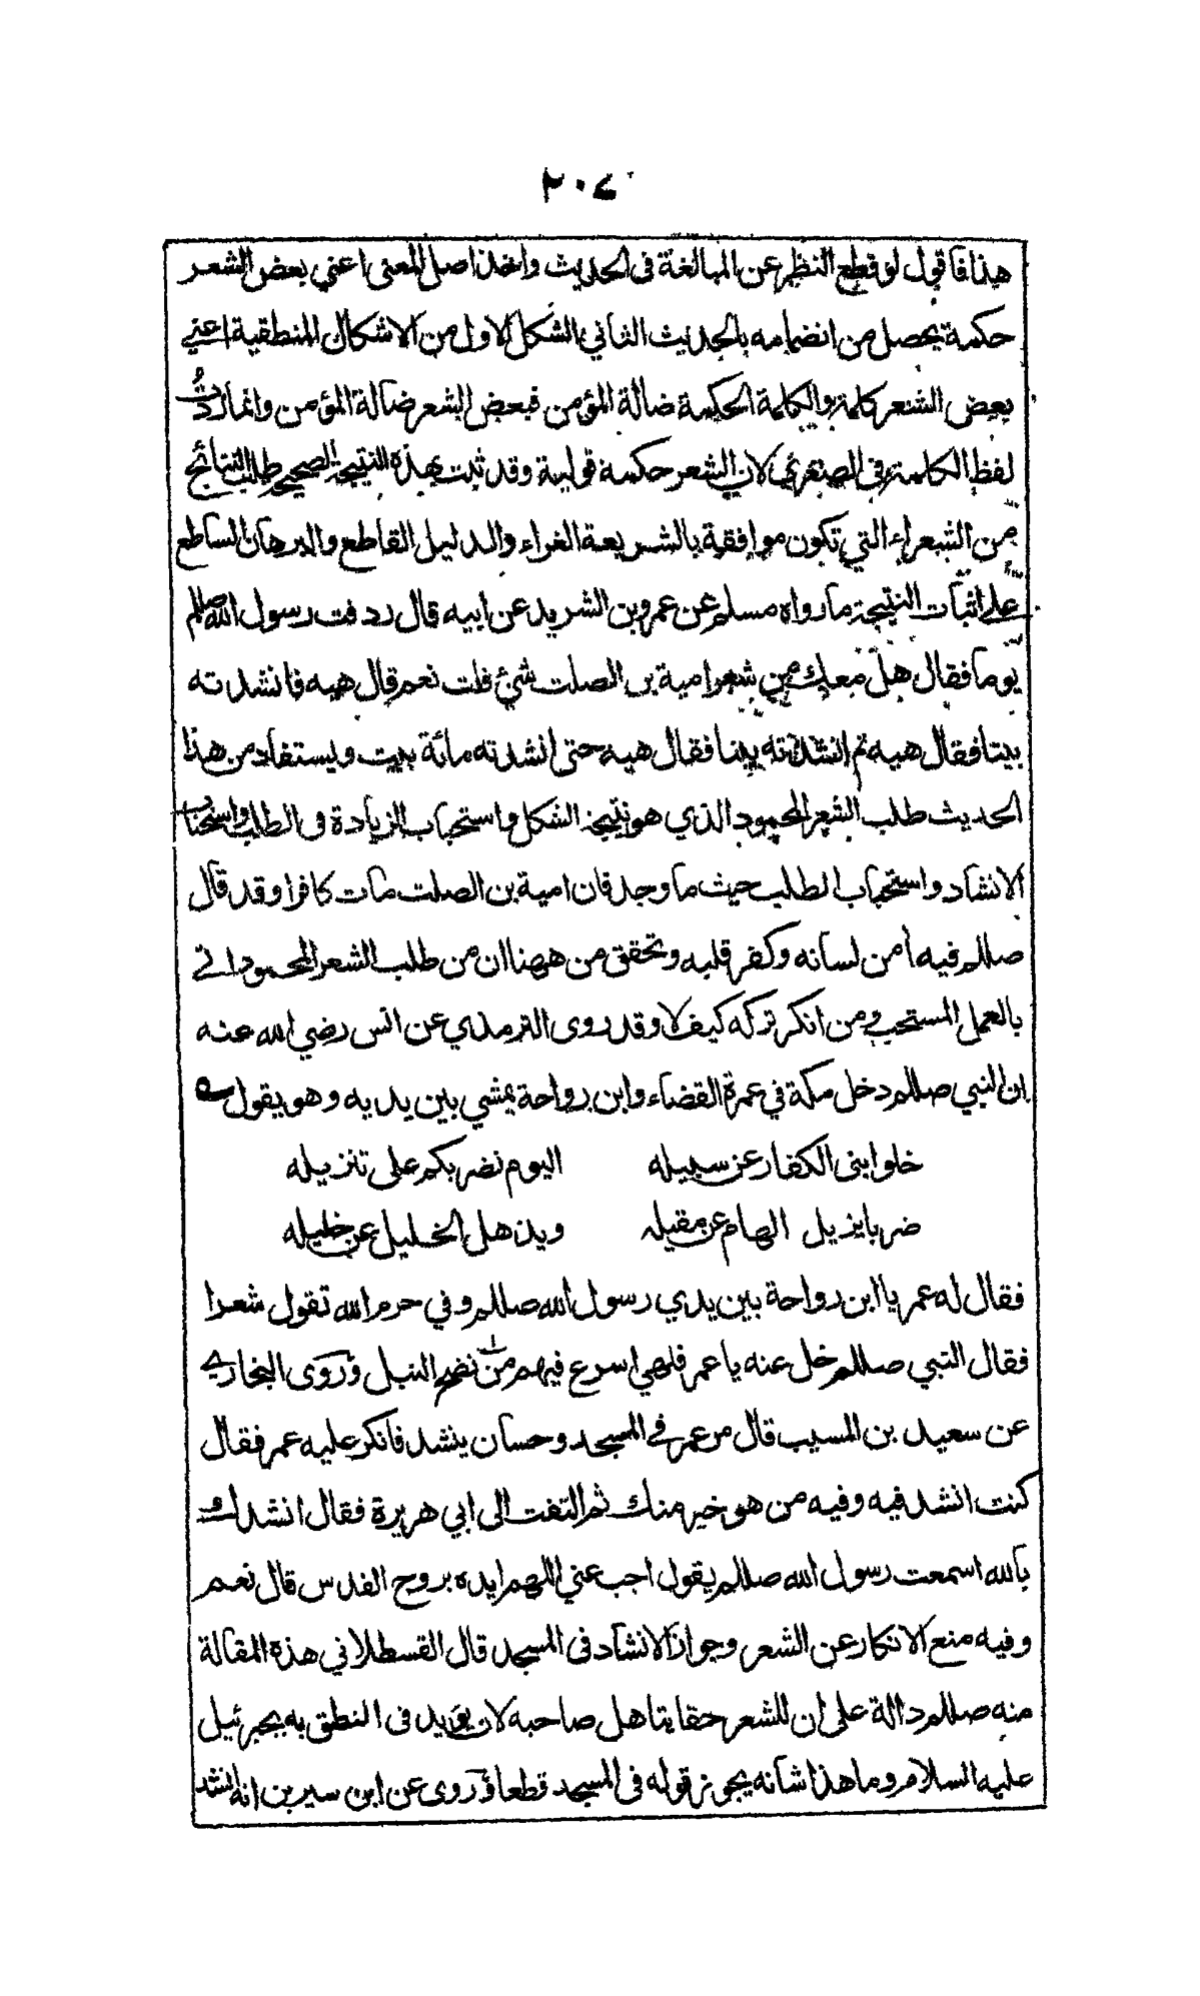 ٢٠٧
هذا فاقول لو قطع النظر عن المبالغة فى الحديث واتخذ اصل المعنى اعني بعض الشعر
حكمة يحصل من انضمامه بالحديث الثاني الشكل الاول من الاشكال المنطقية اعني
بعض الشعر كلمة والكلمة الحكمة ضالة المؤمن فبعض الشعر ضالة المؤمن وانما زدتُ
لفظ الكلمة فى الصغرى لان الشعر حكمة قولية وقد ثبت بهذه النتيجة الصحيحة طلب النتائج
من الشعراء التي تكون موافقة بالشريعة الغراء والدليل القاطع والبرهان الساطع
على اثبات النتيجة ما رواه مسلم عن عمرو بن الشريد عن ابيه قال ردفت رسول الله صللم
يوما فقال هل معك من شعر امية بن الصلت شئ قلت نعم قال هيه فانشدته
بيتا فقال هيه ثم انشدته بيتا فقال هيه حتى انشدته مائة بيت ويستفاد من هذا
الحديث طلب الشعر المحمود الذي هو نتيجة الشكل واستحباب الزيادة في الطلب واستحباب
الانشاد واستحباب الطلب حيث ما وجد فان امية بن الصلت مات كافرا وقد قال
صللم فيه أمن لسانه وكفر قلبه وتحقق من ههنا ان من طلب الشعر المحمود اتى
بالعمل المستحب ومن انكر تركه كيف لا وقد روى الترمذي عن انس رضي الله عنه
ان النبي صللم دخل مكة في عمرة القضاء وابن رواحة يمشي بين يديه وهو يقول
خلوا بنى الكفار عن سبيله اليوم نضربكم على تنزيله
ضربا يزيل الهام عن مقيله ويذهل الخليل عن خليله
فقال له عمر يا ابن رواحة بين يدي رسول الله صللم وفي حرم الله تقول شعرا
فقال النبي صللم خل عنه يا عمر فلهي اسرع فيهم من نضح النبل وروى البخاري
عن سعيد بن المسيب قال مر عمر في المسجد وحسان ينشد فانكر عليه عمر فقال
كنت انشد فيه وفيه من هو خير منك ثم التفت الى ابي هريرة فقال انشدك
بالله اسمعت رسول الله صللم يقول اجب عني اللهم ايده بروح القدس قال نعم
وفيه منع الانكار عن الشعر وجواز الانشاد فى المسجد قال القسطلاني هذه المقالة
منه صللم دالة على ان للشعر حقا يتاهل صاحبه لان يؤيد فى النطق به بجبرئيل
عليه السلام وما هذا شانه يجوز قوله فى المسجد قطعا وروى عن ابن سيرين انه انشد